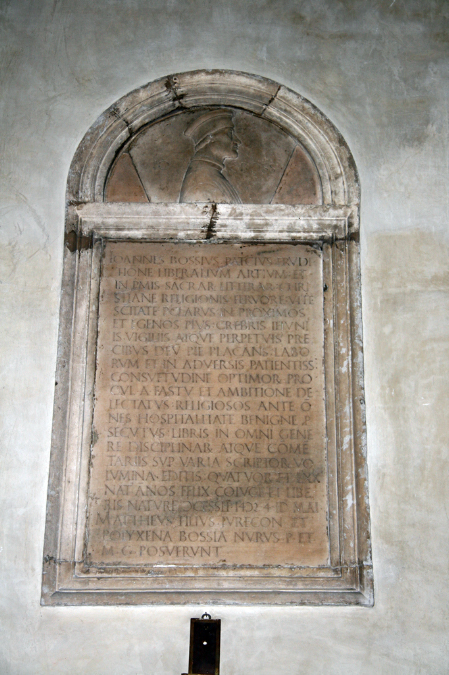 IOANNES BOSSIVS
TIONE LIBERALIVM ARTIVM ET
IN PMIS SACRAR LITTERAR CHRI
STIANE RELIGIONIS FERVORE VITE
IN PROXIMOS
ET EGENOS PIVS CREBRIS IEIVNI
IS VIGILIIS ATQVE PERPETVIS PRE
CIBVS DEV PIE PLACANS LABO
RVM ET IN ADVERSIS PATIENTISS
CONSVETVDINE OPTIMOR PRO
CVL A FASTV ET AMBITIONE DE
LECTATVS RELIGIOSOS ANTE O
NES HOSPITALITATE BENIGNE P
SECVTVS LIBRIS IN OMNI GENE
RE DISCIPLINAR ATQVE COME
TARIIS SVP VARIA SCRIPTOR VO
LVMINA EDITIS QVATVOR ET
NAT ANOS FELIX COIVGE ET LIBE
RIS NATVRE
MATTHEVS FILIVS IVRECON ET
POLYXENA BOSSIA NVRVS P ET
M G POSVERVNT